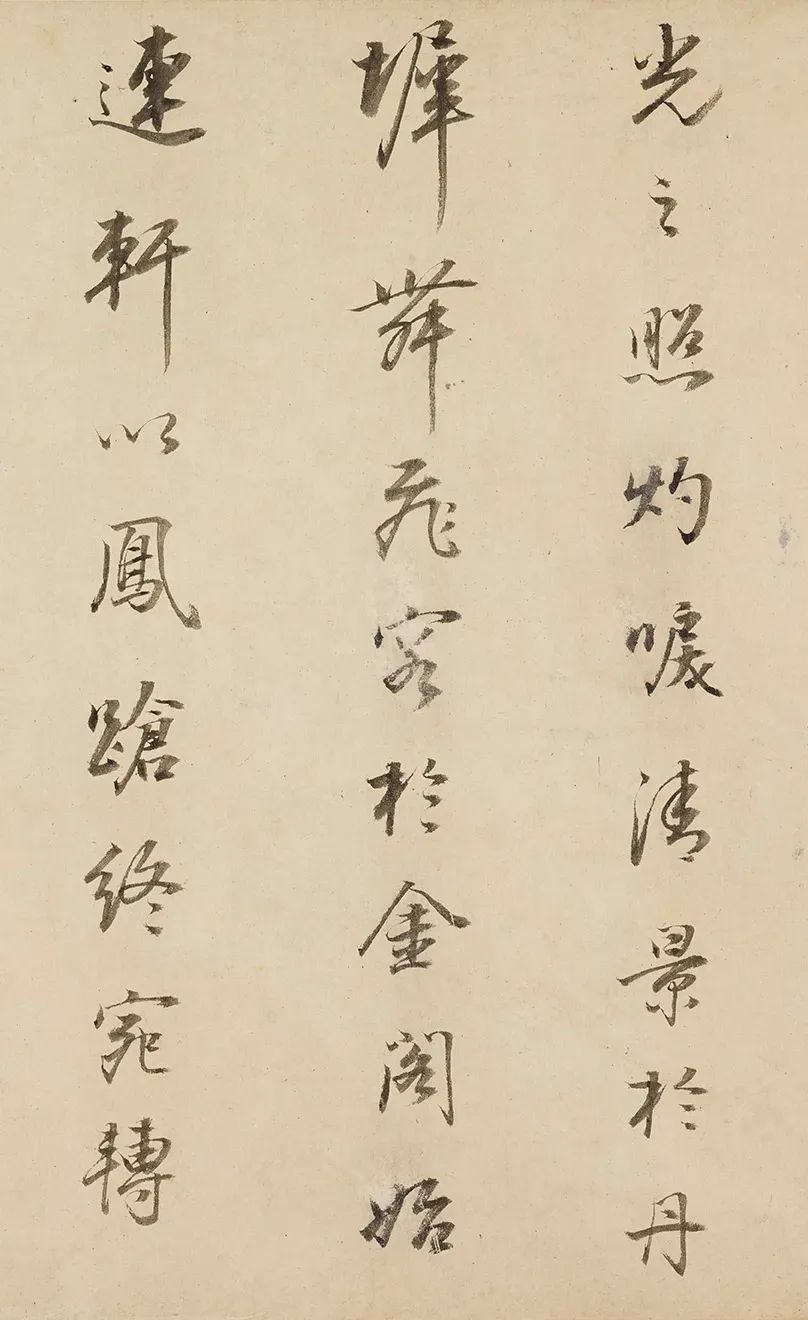 光之照灼唳清景於丹
墀舞飛容於金閣始
連軒以鳳蹌終宛轉